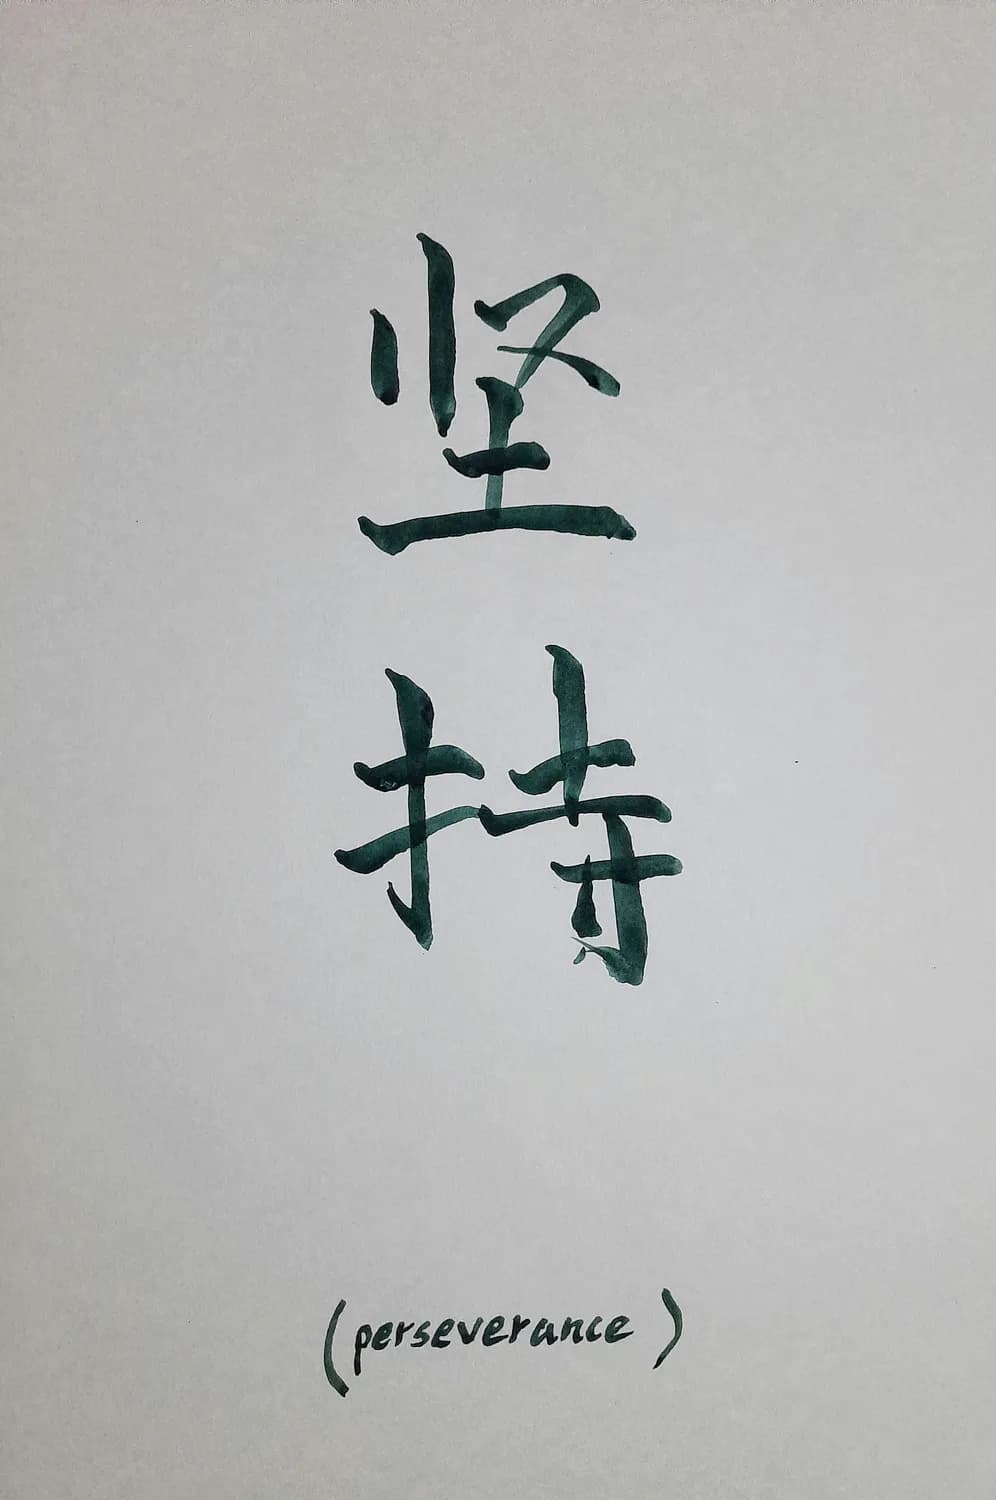 坚
持
(perseverance)